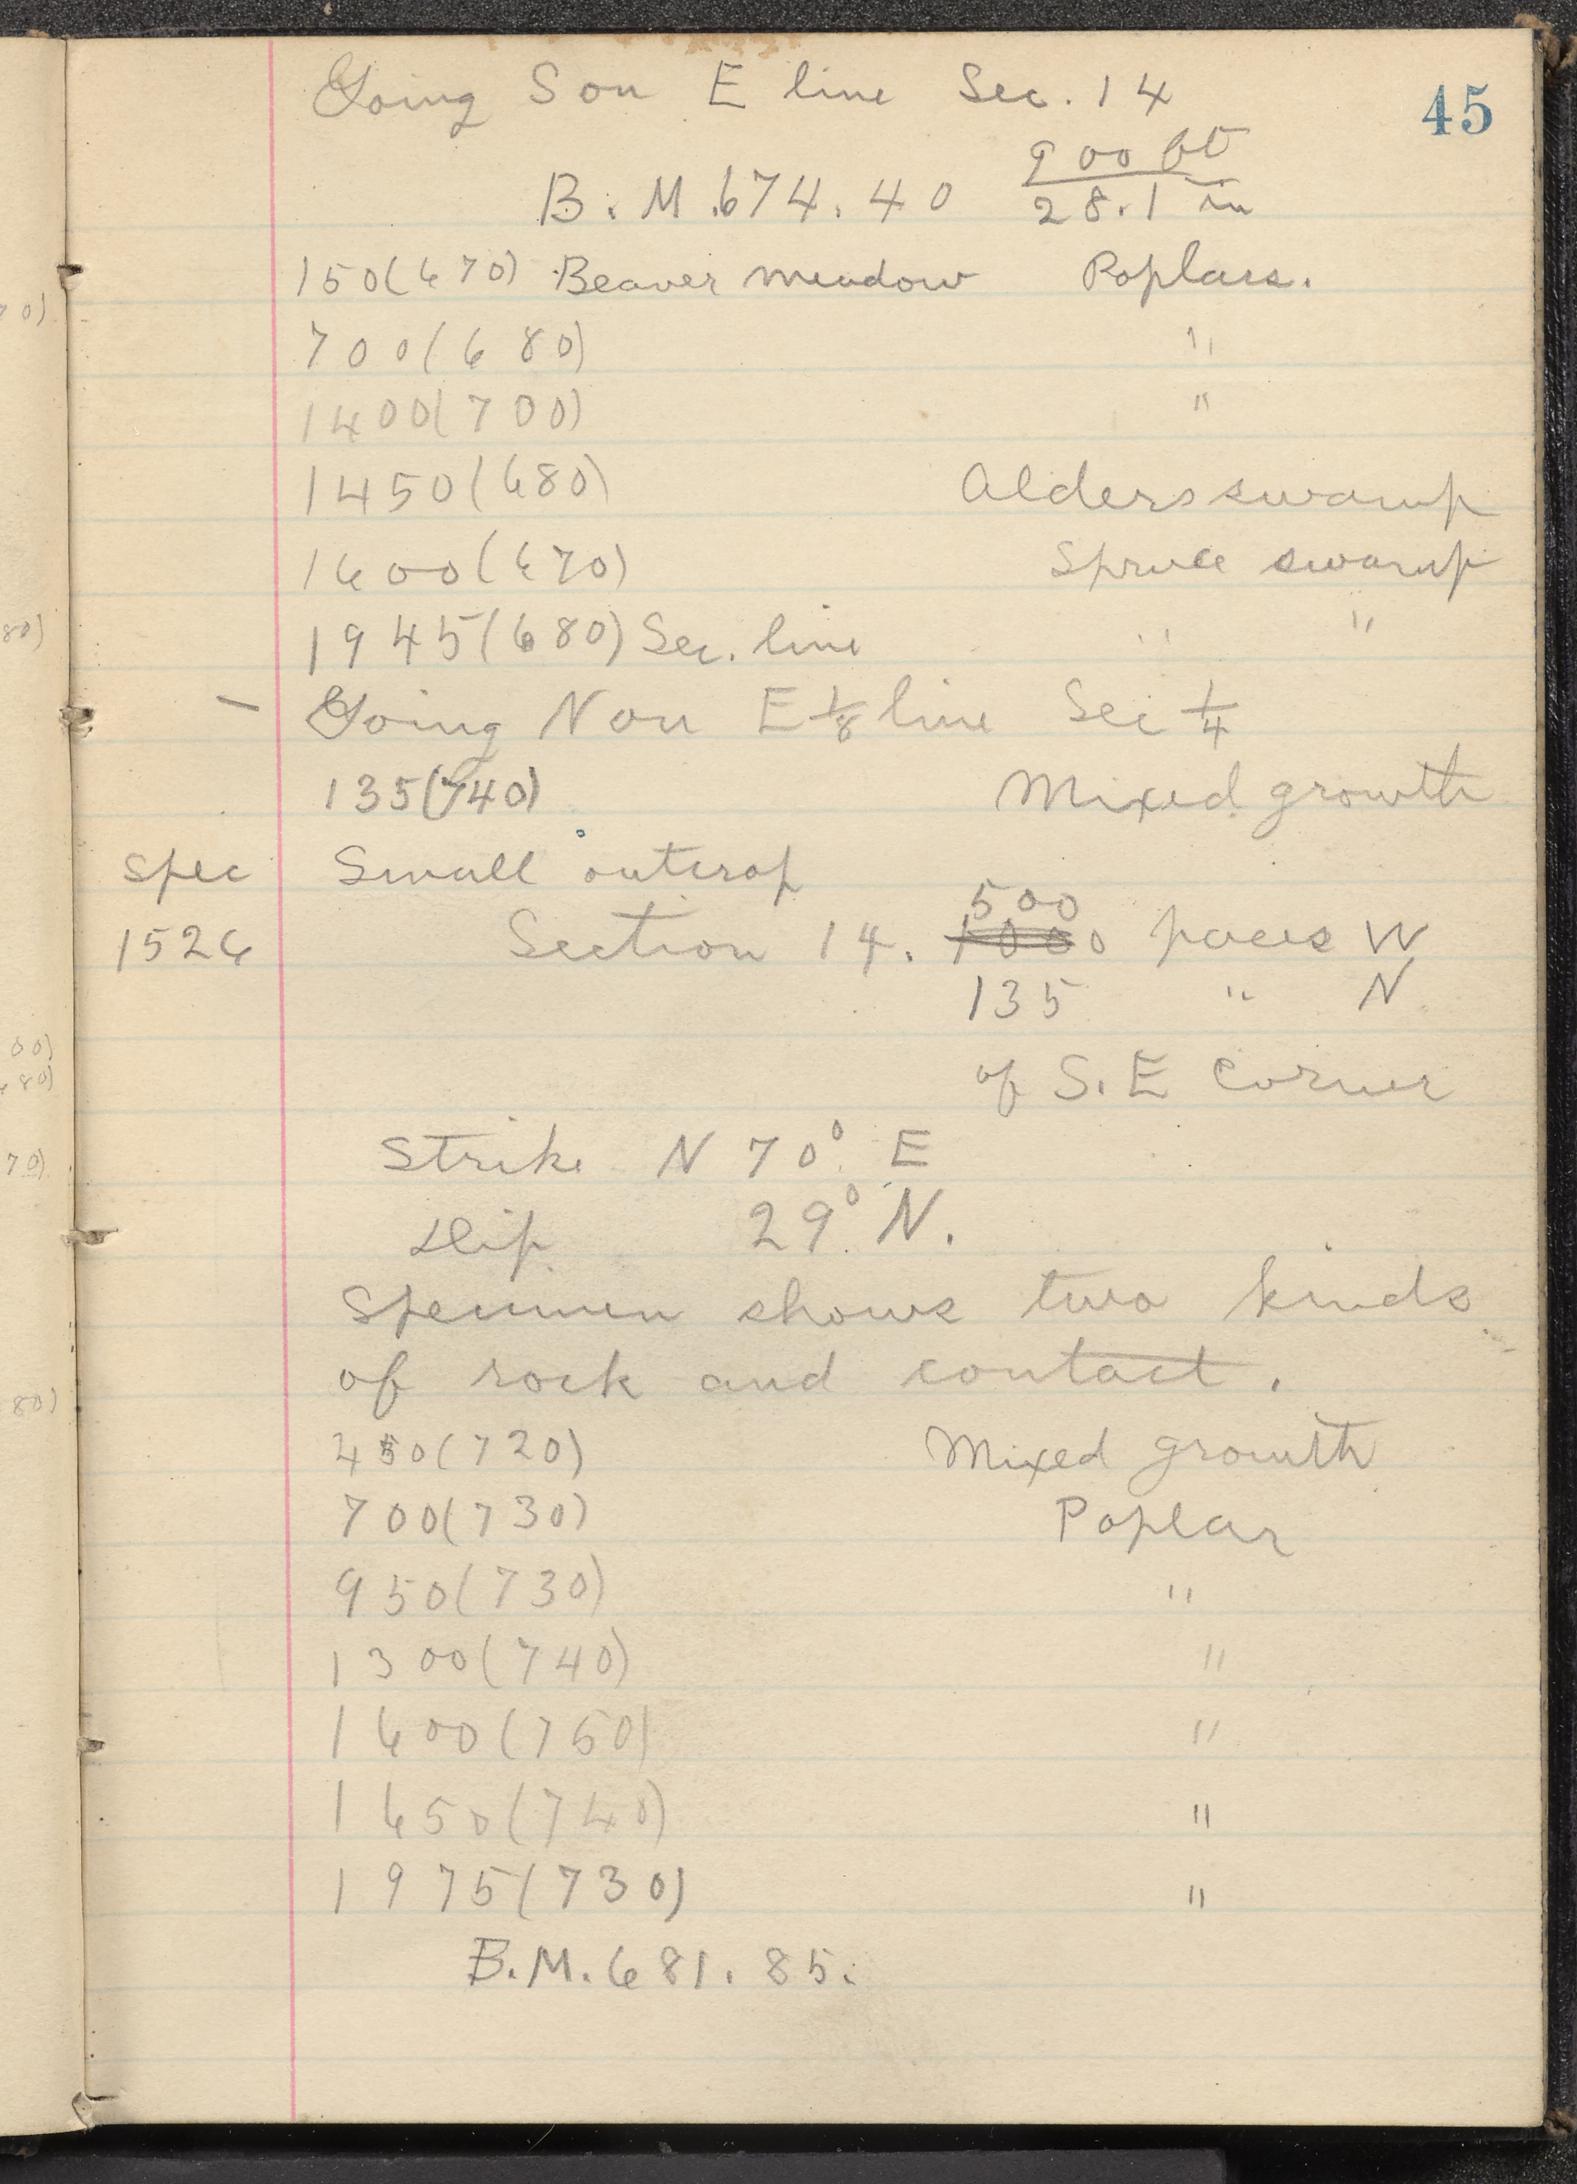 45
Going S on E line Sec. 14
900 ft
B. M. 674. 40 28.1 in
150(670) Beaver meadow Poplars.
700(680) "
1400(700) "
1450(680) Alders swamp
1600(670) Spruce swamp
1945(680) Sec. line " "
– Going N on E 1/8 line Sec 1/4
135(740) Mixed growth
Spec Small outcrop
500
1526 Section 14. 1000 paces W
135 " N
of S. E Corner
Strike N 70° E
Dip 29° N.
Specimen shows two kinds
of rock and contact.
450(720) Mixed growth
700(730) Poplar
950(730) "
1300(740) "
1600(750) "
1650(740) "
1975(730) "
B. M. 681. 85.